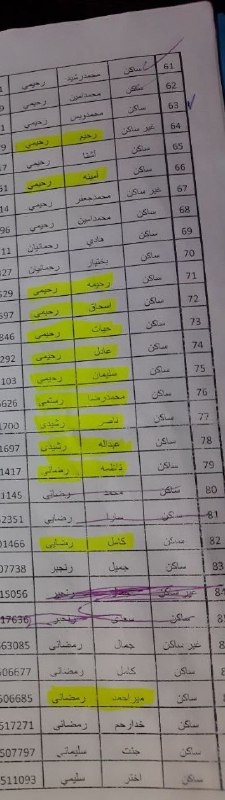 61 ساکن محمدرشید رحیمی
62 ساکن محمدامین رحیمی
63 ساکن محمدویس رحیمی
64 غیر ساکن رحیم رحیمی
65 ساکن آشنا رحیمی
66 ساکن آمینه رحیمی
67 غیر ساکن محمدجعفر رحیمی
68 ساکن محمدامین رحیمی
69 ساکن هادی رحمانیان
70 ساکن بختیار رحمانیان
71 ساکن رحیمه رحیمی 529
72 ساکن اسحاق رحیمی 597
73 ساکن حیات رحیمی 846
74 ساکن عادل رحیمی 292
75 ساکن سلیمان رحیمی 103
76 ساکن محمدرضا رستمی 5626
77 ساکن ناصر رشیدی 1700
78 ساکن عبداله رشیدی 1697
79 ساکن فاطمه رضائی 1417
80 ساکن محمد رضایی 1145
81 ساکن سارا رضایی 52351
82 ساکن کامل رضایی 01466
83 ساکن جمیل رنجبر 07738
غیر ساکن رنجبر 15056
ساکن سعدی 17636
غیر ساکن جمال رمضانی 563085
ساکن کامل رمضانی 506677
ساکن میراحمد رمضانی 506685
ساکن خدارحم رمضانی 517271
ساکن جنت سلیمانی 507797
ساکن اختر سلیمی 511093